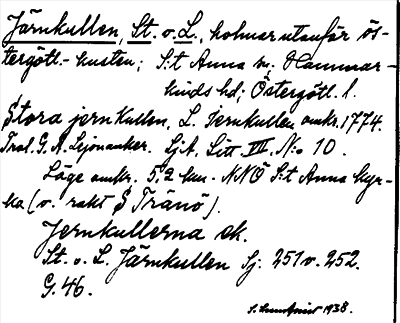 Järnkullen, St. o. L., holmar utanför ös-
tergötl.-kusten; S:t Anna sn; Hammar-
kinds hd; Östergötl. l.
Stora jernkullen, L. Jernkullen omkr. 1774.
Trol. G. A. Lejonanker. Sjk. Litt VII. N:o 10.
Läge omkr. 5,2 km. NNÖ S:t Anna kyr-
ka (v. rakt S Tränö).
Jernkullerna ek.
St. o. L. Järnkullen Sj: 251 v. 252.
G. 46.
1938.